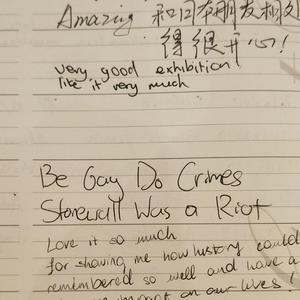 Amazing 和日本朋友相处
得很开心!
very good exhibition!
like it very much
Be Gay Do Crimes
Stonewall Was a Riot
Love it so much
for showing me how history could
remembered so well and have a
impact on our lives!